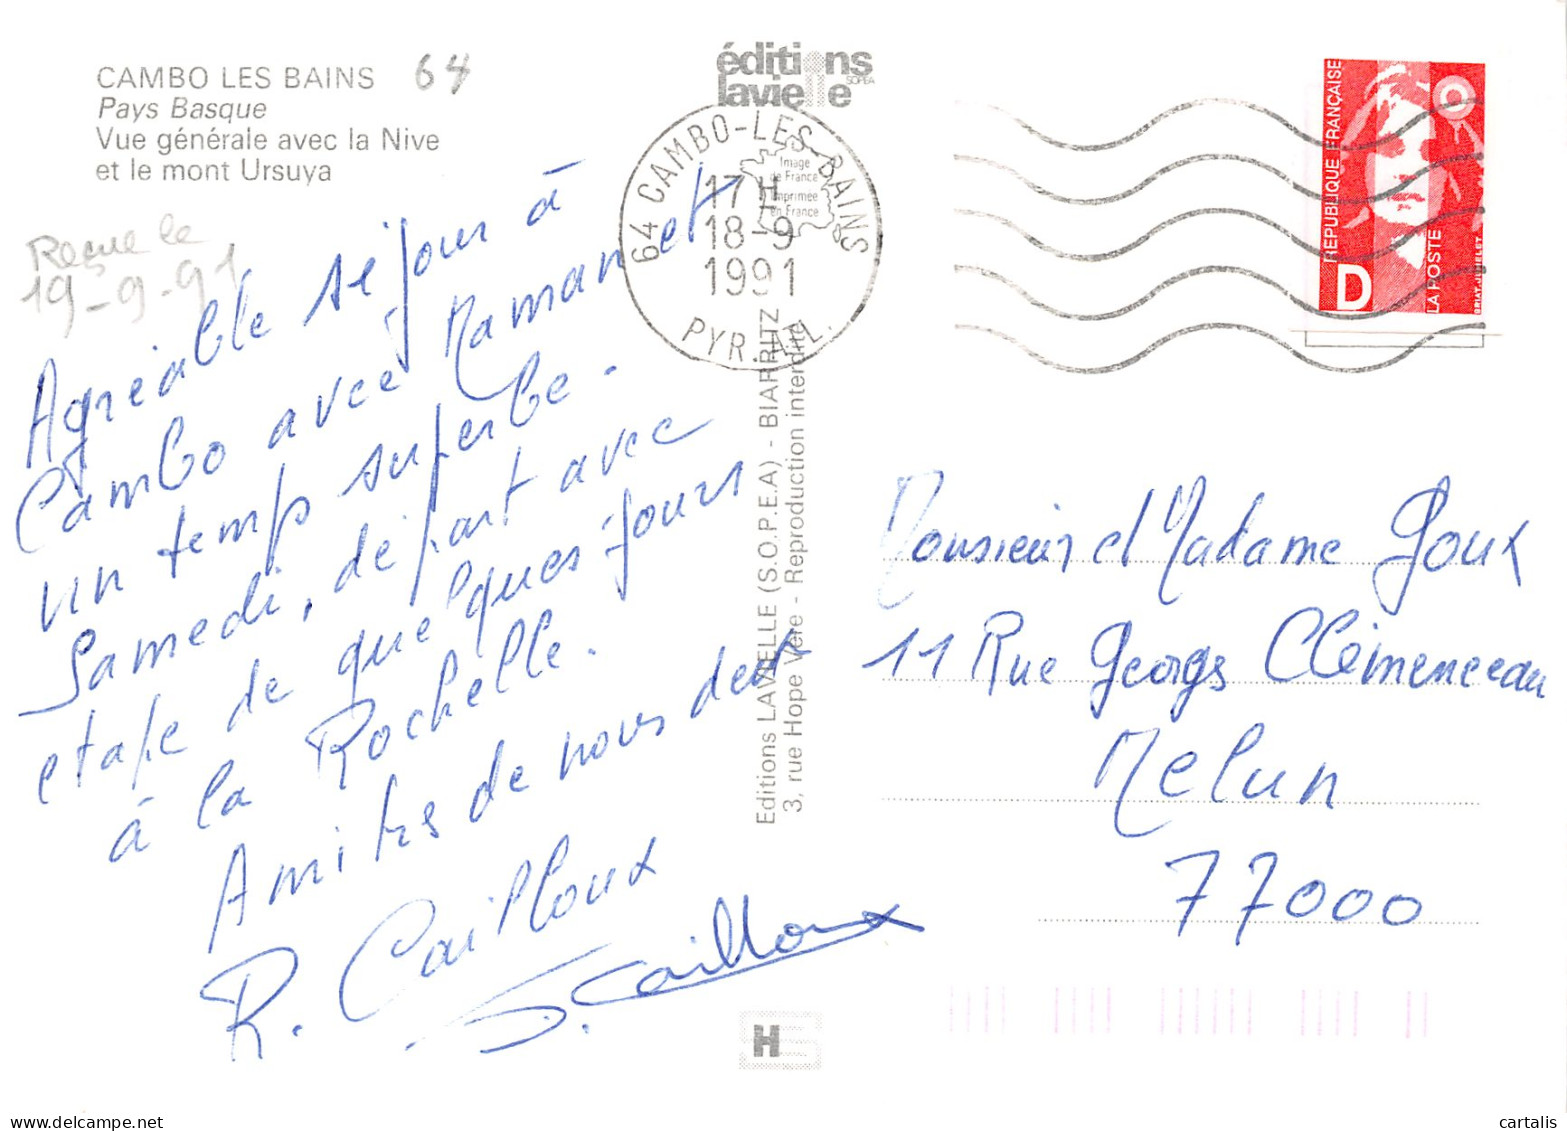 CAMBO LES BAINS 64
Pays Basque
Vue générale avec la Nive
et le mont Ursuya
Reçue le
19-9-91
Agréable séjour à
Cambo avec Maman et
un temps superbe.
Samedi, départ avec
etape de quelques jours
à la Rochelle.
Amitiés de nous deux
R. Cailloux
S. Cailloux
éditions
lavielle
SOPEA
Image
de France
Imprimée
en France
64 CAMBO-LES-BAINS
17 H
18-9
1991
PYR. ATL.
Editions LAVIELLE (S.O.P.E.A) - BIARRITZ
3, rue Hope Vère - Reproduction interdite
H
REPUBLIQUE FRANÇAISE
D
LA POSTE
BRIAT-JUMELET
Monsieur et Madame Goux
11 Rue Georges Clémenceau
Melun
77000
© cartalis